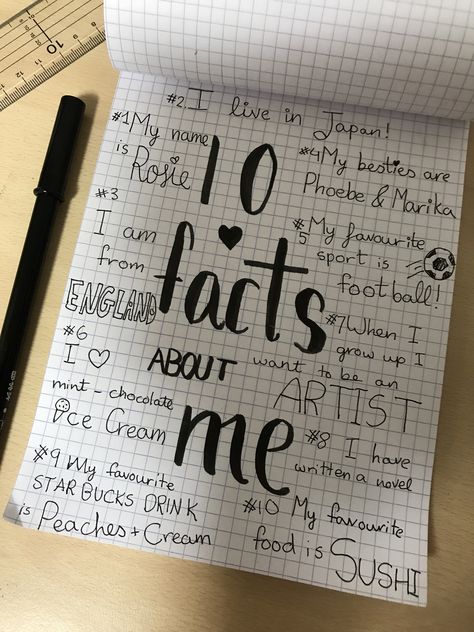 10
facts
ABOUT
me
#1 My name
is
Rosie
#2. I live in Japan!
#3
I am
from
ENGLAND
#4 My besties are
Phoebe & Marika
#5 My favourite
sport is
football!
#6
I ♡
mint-chocolate
ice Cream
#7 When I
grow up I
want to be an
ARTIST
#8 I have
written a novel
#9 My favourite
STARBUCKS DRINK
is Peaches + Cream
#10 My favourite
food is SUSHI
10